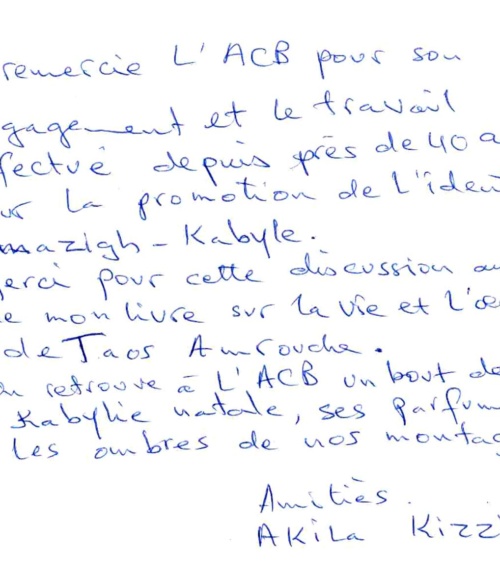 remercie L'ACB pour son
gagement et le travail
fectué depuis près de 40 a
ur la promotion de l'iden
mazigh - Kabyle.
erci pour cette discussion au
e mon livre sur la vie et l'œ
de Taos Amrouche.
n retrouve à L'ACB un bout de
Kabylie natale, ses parfum
les ombres de nos montag
Amitiès.
AKiLa Kizzi